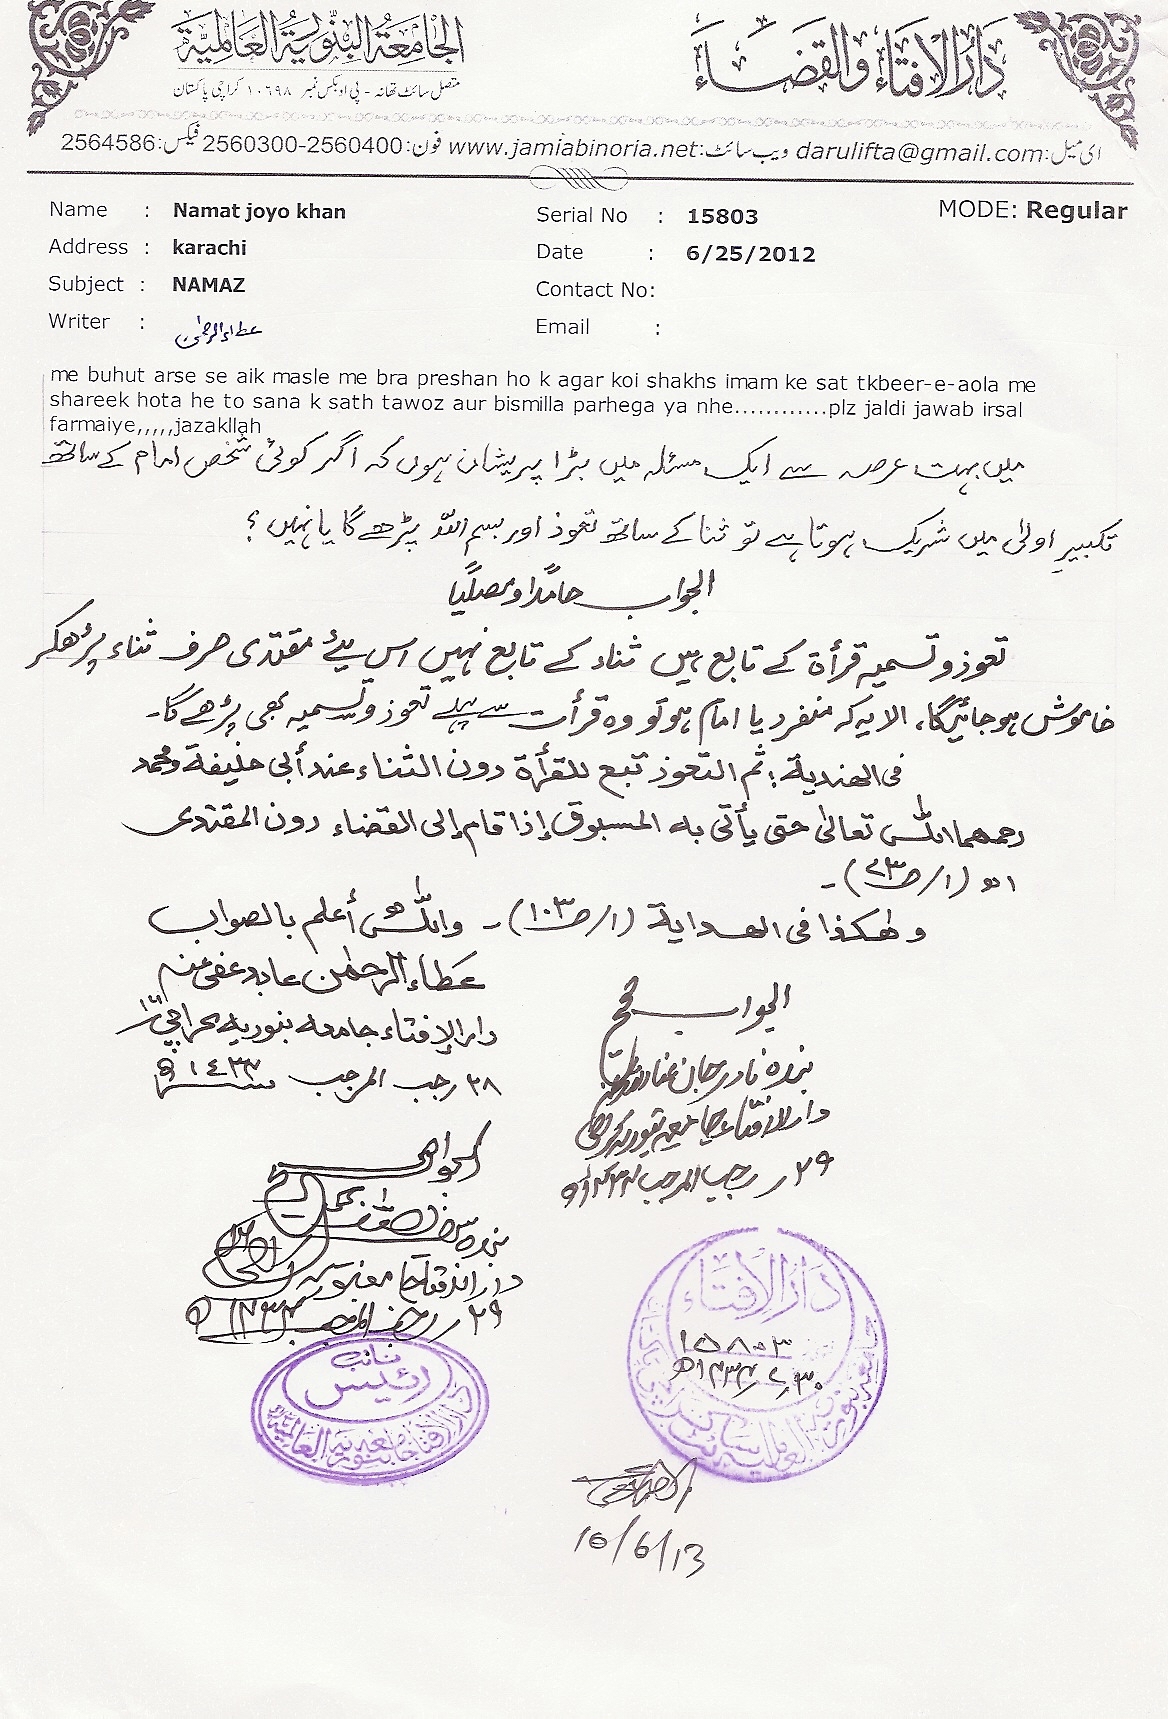 دار الافتاء والقضاء
الجامعة البنورية العالمية
متصل سائٹ تھانہ - پی او بکس نمبر ۱۰۶۹۸ کراچی پاکستان
ای میل:darulifta@gmail.com ویب سائٹ:www.jamiabinoria.net فون:2560300-2560400 فیکس:2564586
Name : Namat joyo khan Serial No : 15803 MODE: Regular
Address : karachi Date : 6/25/2012
Subject : NAMAZ Contact No:
Writer : عطاء الرحمٰن Email :
me buhut arse se aik masle me bra preshan ho k agar koi shakhs imam ke sat tkbeer-e-aola me
shareek hota he to sana k sath tawoz aur bismilla parhega ya nhe............plz jaldi jawab irsal
farmaiye,,,,,jazakllah
میں بہت عرصہ سے ایک مسئلہ میں بڑا پریشان ہوں کہ اگر کوئی شخص امام کے ساتھ
تکبیرِ اولیٰ میں شریک ہوتا ہے تو ثنا کے ساتھ تعوذ اور بسم اللہ پڑھے گا یا نہیں ؟
الجواب حامدًا ومصلیًا
تعوذ وتسمیہ قرأۃ کے تابع ہیں ثناء کے تابع نہیں اس لیئے مقتدی صرف ثناء پڑھکر
خاموش ہوجائیگا، الا یہ کہ منفرد یا امام ہو تو وہ قرأت سے پہلے تعوذ وتسمیہ بھی پڑھے گا۔
فی الھندیة: ثم التعوذ تبع للقرأة دون الثناء عند أبی حنیفة ومحمد
رحمھما اللہ تعالیٰ حتی یأتی به المسبوق إذا قام إلی القضاء دون المقتدی
اھ (۱/ص۷۳)۔
وھٰکذا فی الھدایة (۱/ص۱۰۳)۔ واللہ أعلم بالصواب
عطاء الرحمٰن عابد عفی عنہ
دار الإفتاء جامعہ بنوریہ کراچی ۱۶
۲۸ رجب المرجب ۱٤۳۳ھ
الجواب صحیح
بندہ نادر جان
دار الافتاء جامعہ بنوریہ کراچی
۲۹ رجب المرجب ۱۴۳۳ھ
الجواب صحیح
بندہ
دار الافتاء جامعہ بنوریہ
۲۹ رجب المرجب ۱۴۳۳ھ
دار الافتاء
۱۵۸۰۳
۳۰/۷/۱۴۳۳ھ
نائب
رئیس
دار الافتاء جامعہ بنوریہ العالمیہ
10/6/13